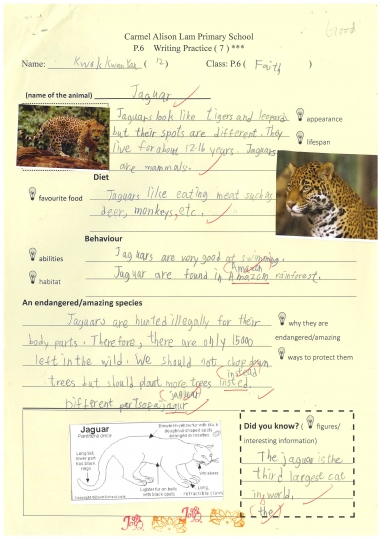 Good
Carmel Alison Lam Primary School
P.6 Writing Practice ( 7 ) ***
Name: Kwok Kwan Yan ( 12 ) Class: P.6 ( Faith )
(name of the animal) Jaguar
Jaguars look like tigers and leopards
but their spots are different. They
live for about 12-16 years. Jaguars
are mammals.
appearance
lifespan
Diet
favourite food
Jaguars like eating meat such as
deer, monkeys, etc.
Behaviour
abilities
habitat
Jaguars are very good at swimming.
(Amazon)
Jaguar are found in Amazon rainforest.
An endangered/amazing species
Jaguars are hunted illegally for their
body parts. Therefore, there are only 15000
left in the wild. We should not chop down
instead
trees but should plant more trees insted.
(jaguar)
Different parts of a jagur
why they are
endangered/amazing
ways to protect them
Jaguar
Panthera onca
Brownish-yellow fur with black
doughnut-shaped spots
arranged in rosettes
Long tail,
lower part
has black
rings
Whiskers
Lighter fur on belly
with black spots
Long,
retractable claws
Did you know? ( figures/
interesting information)
The jaguar is the
third largest cat
in world.
(the)